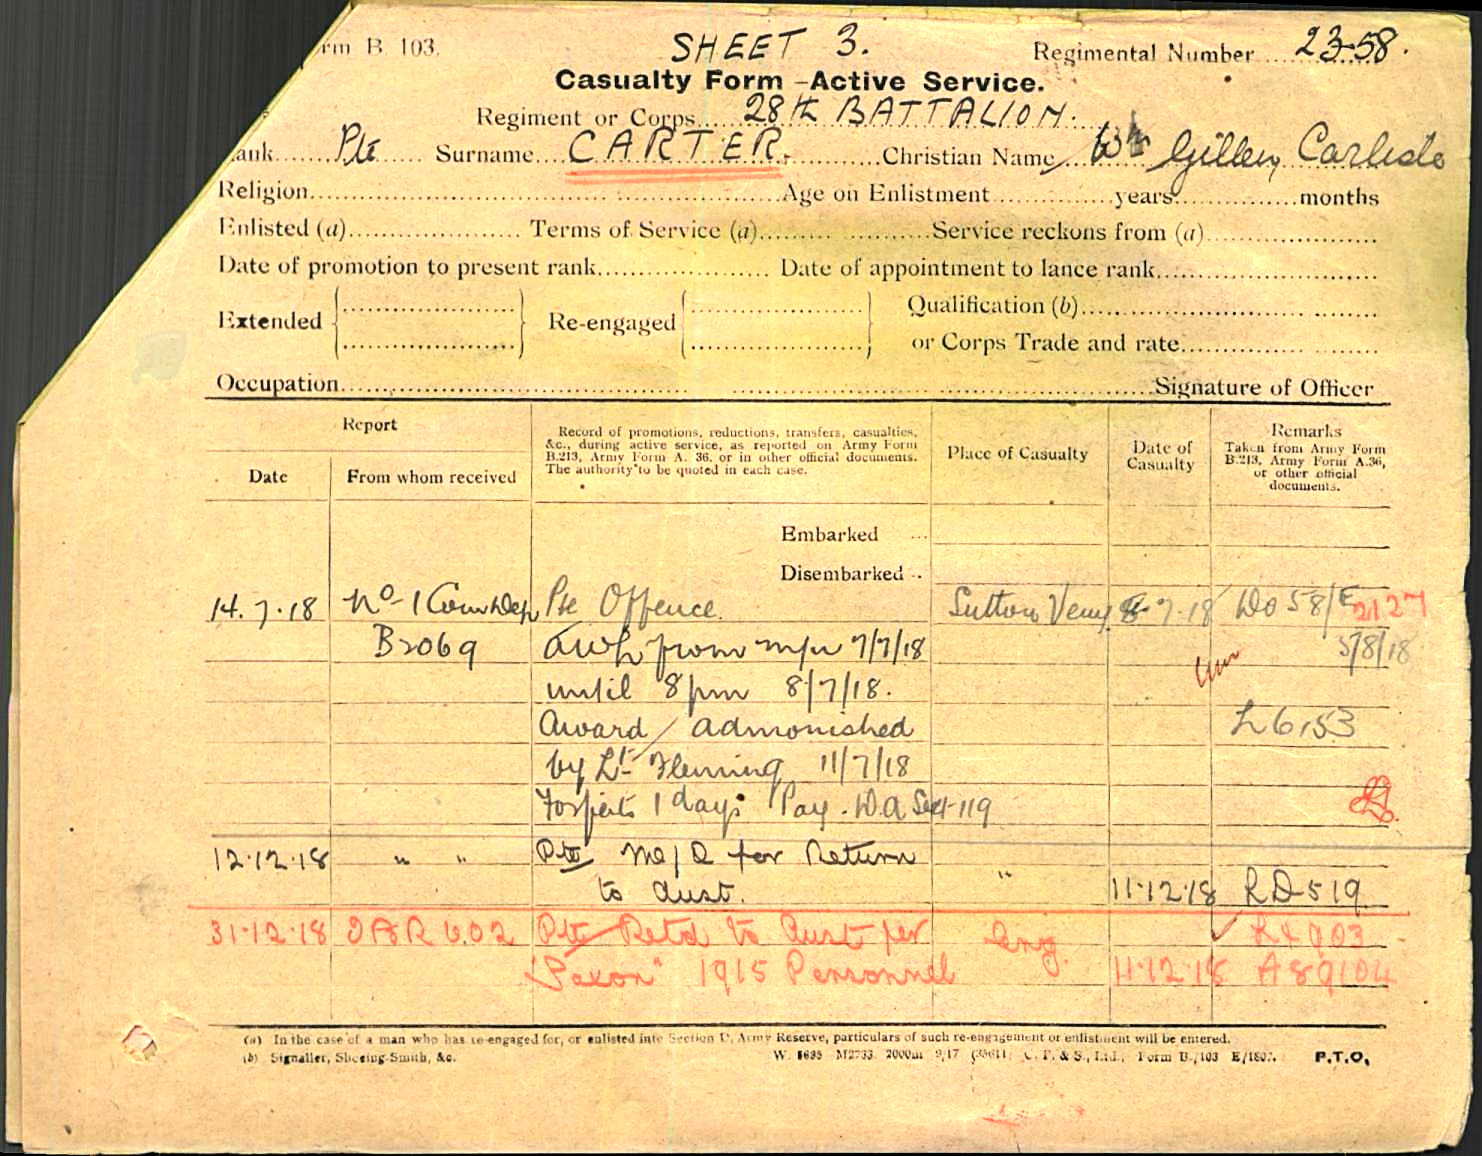 rm B. 103.
SHEET 3.
Regimental Number 2358.
Casualty Form - Active Service.
Regiment or Corps 28th BATTALION.
ank Pte Surname CARTER. Christian Name Wm Carlisle
Religion Age on Enlistment years months
Enlisted (a) Terms of Service (a) Service reckons from (a)
Date of promotion to present rank Date of appointment to lance rank
Extended Re-engaged Qualification (b)
or Corps Trade and rate
Occupation Signature of Officer
Report
Date
From whom received
Record of promotions, reductions, transfers, casualties,
&c., during active service, as reported on Army Form
B.213, Army Form A. 36, or in other official documents.
The authority to be quoted in each case.
Place of Casualty
Date of
Casualty
Remarks
Taken from Army Form
B.213, Army Form A.36,
or other official
documents.
Embarked
Disembarked
14.7.18 No-1 Com Dep Pte Offence. Sutton Veny 8-7-18 DO 58/E 2127
B2069 AWL from m/n 7/7/18 5/8/18
until 8pm 8/7/18.
Award / admonished L6153
by Lt Fleming 11/7/18
Forfeits 1 days Pay. W.A Sect 119
12.12.18 " " Pte M/E for Return "
to Aust. 11.12.18 RD519
31.12.18 Pte Retd to Aust per Eng.
"Saxon" 1915 Personnel 11.12.18 A89104
(a) In the case of a man who has re-engaged for, or enlisted into Section D, Army Reserve, particulars of such re-engagement or enlistment will be entered.
(b) Signaller, Shoeing-Smith, &c. W. 5635 M2733. 2000m 9/17 C. P. & S., Ltd., Form B./103 P.T.O.